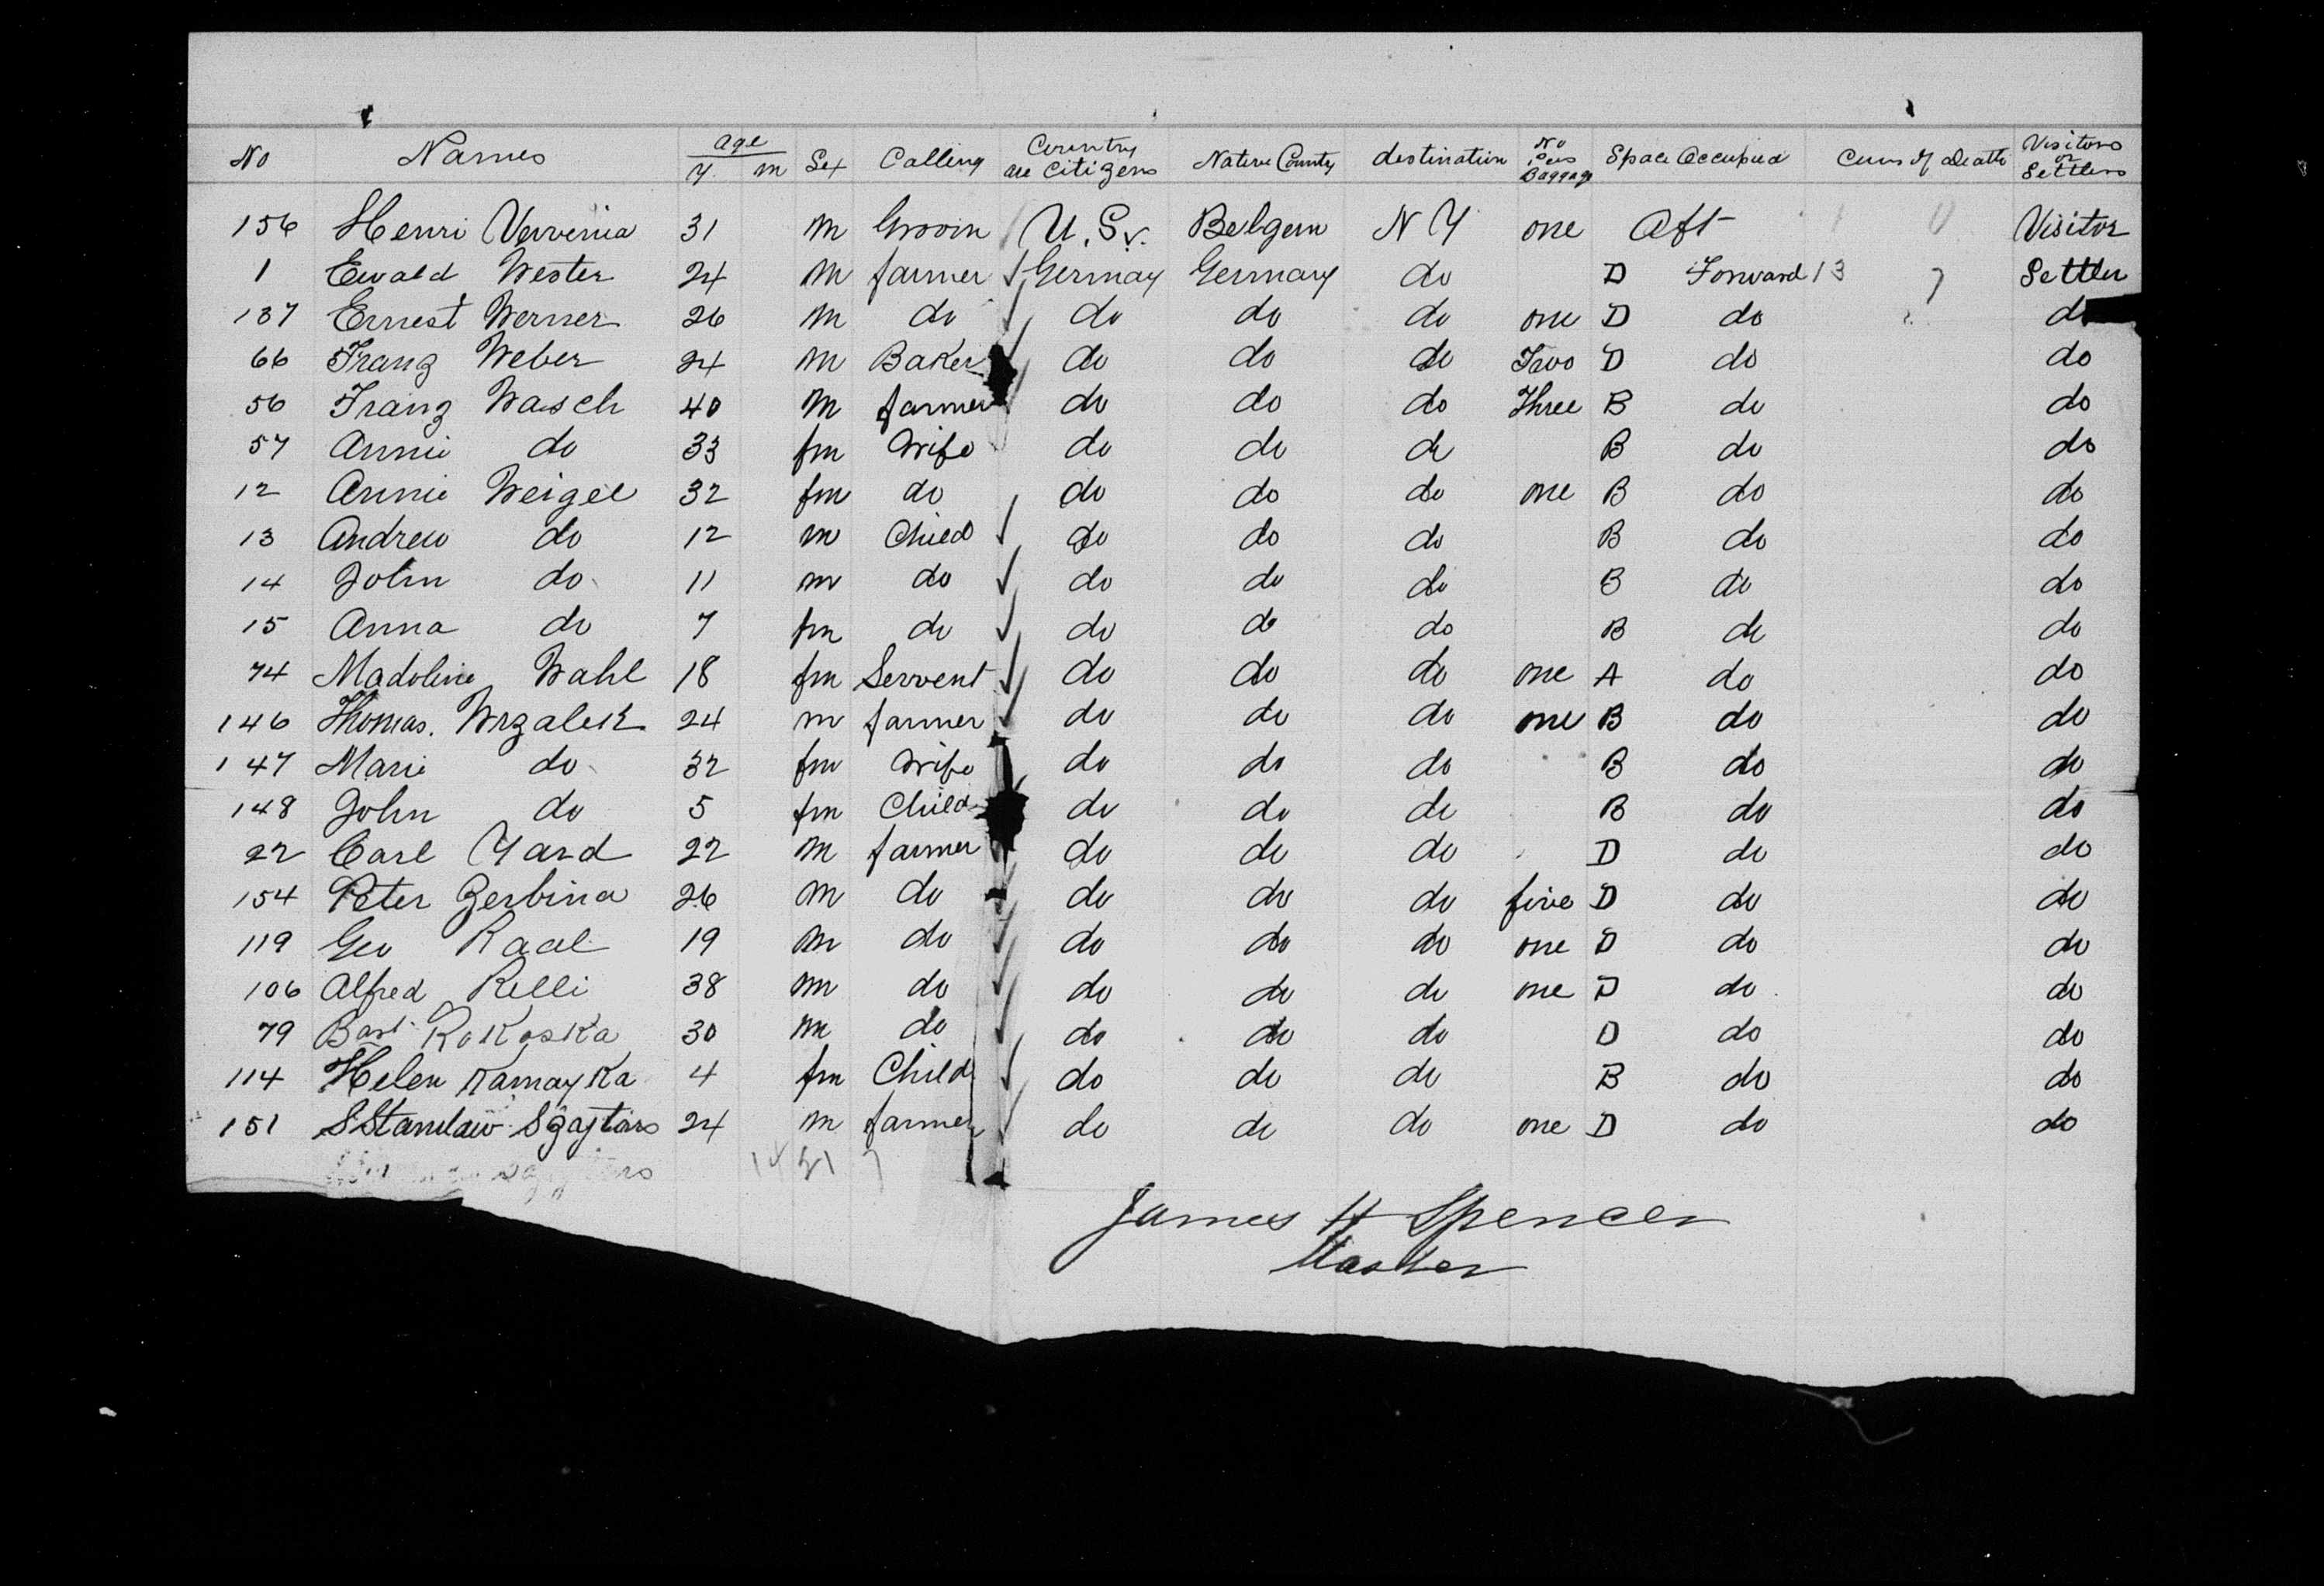 No Names Age Y m Sex Calling Country are Citizens Native County destination No Pcs Baggage Space Occupied Caus of death Visitors or Settlers
156 Henri Ververia 31 m Groom U.S. Belgem N Y one Aft Visitor
1 Ewald Wester 24 m farmer Germay Germany do D Forward 13 Settler
137 Ernest Werner 26 m do do do do one D do do
66 Franz Weber 24 m Baker do do do Two D do do
56 Franz Wasch 40 m farmer do do do Three B do do
57 Annie do 33 fm Wife do do do B do do
12 Annie Weigel 32 fm do do do do one B do do
13 Andrew do 12 m Child do do do B do do
14 John do 11 m do do do do B do do
15 Anna do 7 fm do do do do B do do
74 Madoline Wahl 18 fm Servent do do do one A do do
146 Thomas. Wrzalek 24 m farmer do do do one B do do
147 Marie do 32 fm Wife do do do B do do
148 John do 5 fm Child do do do B do do
22 Carl Yard 22 m farmer do do do D do do
154 Peter Zerbina 26 m do do do do five D do do
119 Geo Raal 19 m do do do do one D do do
106 Alfred Relli 38 m do do do do one D do do
79 Bart. RoKosKa 30 m do do do do D do do
114 Helen KamayKa 4 fm Child do do do B do do
151 SStanslaw 24 m farmer do do do one D do do
James H Spencer
Master